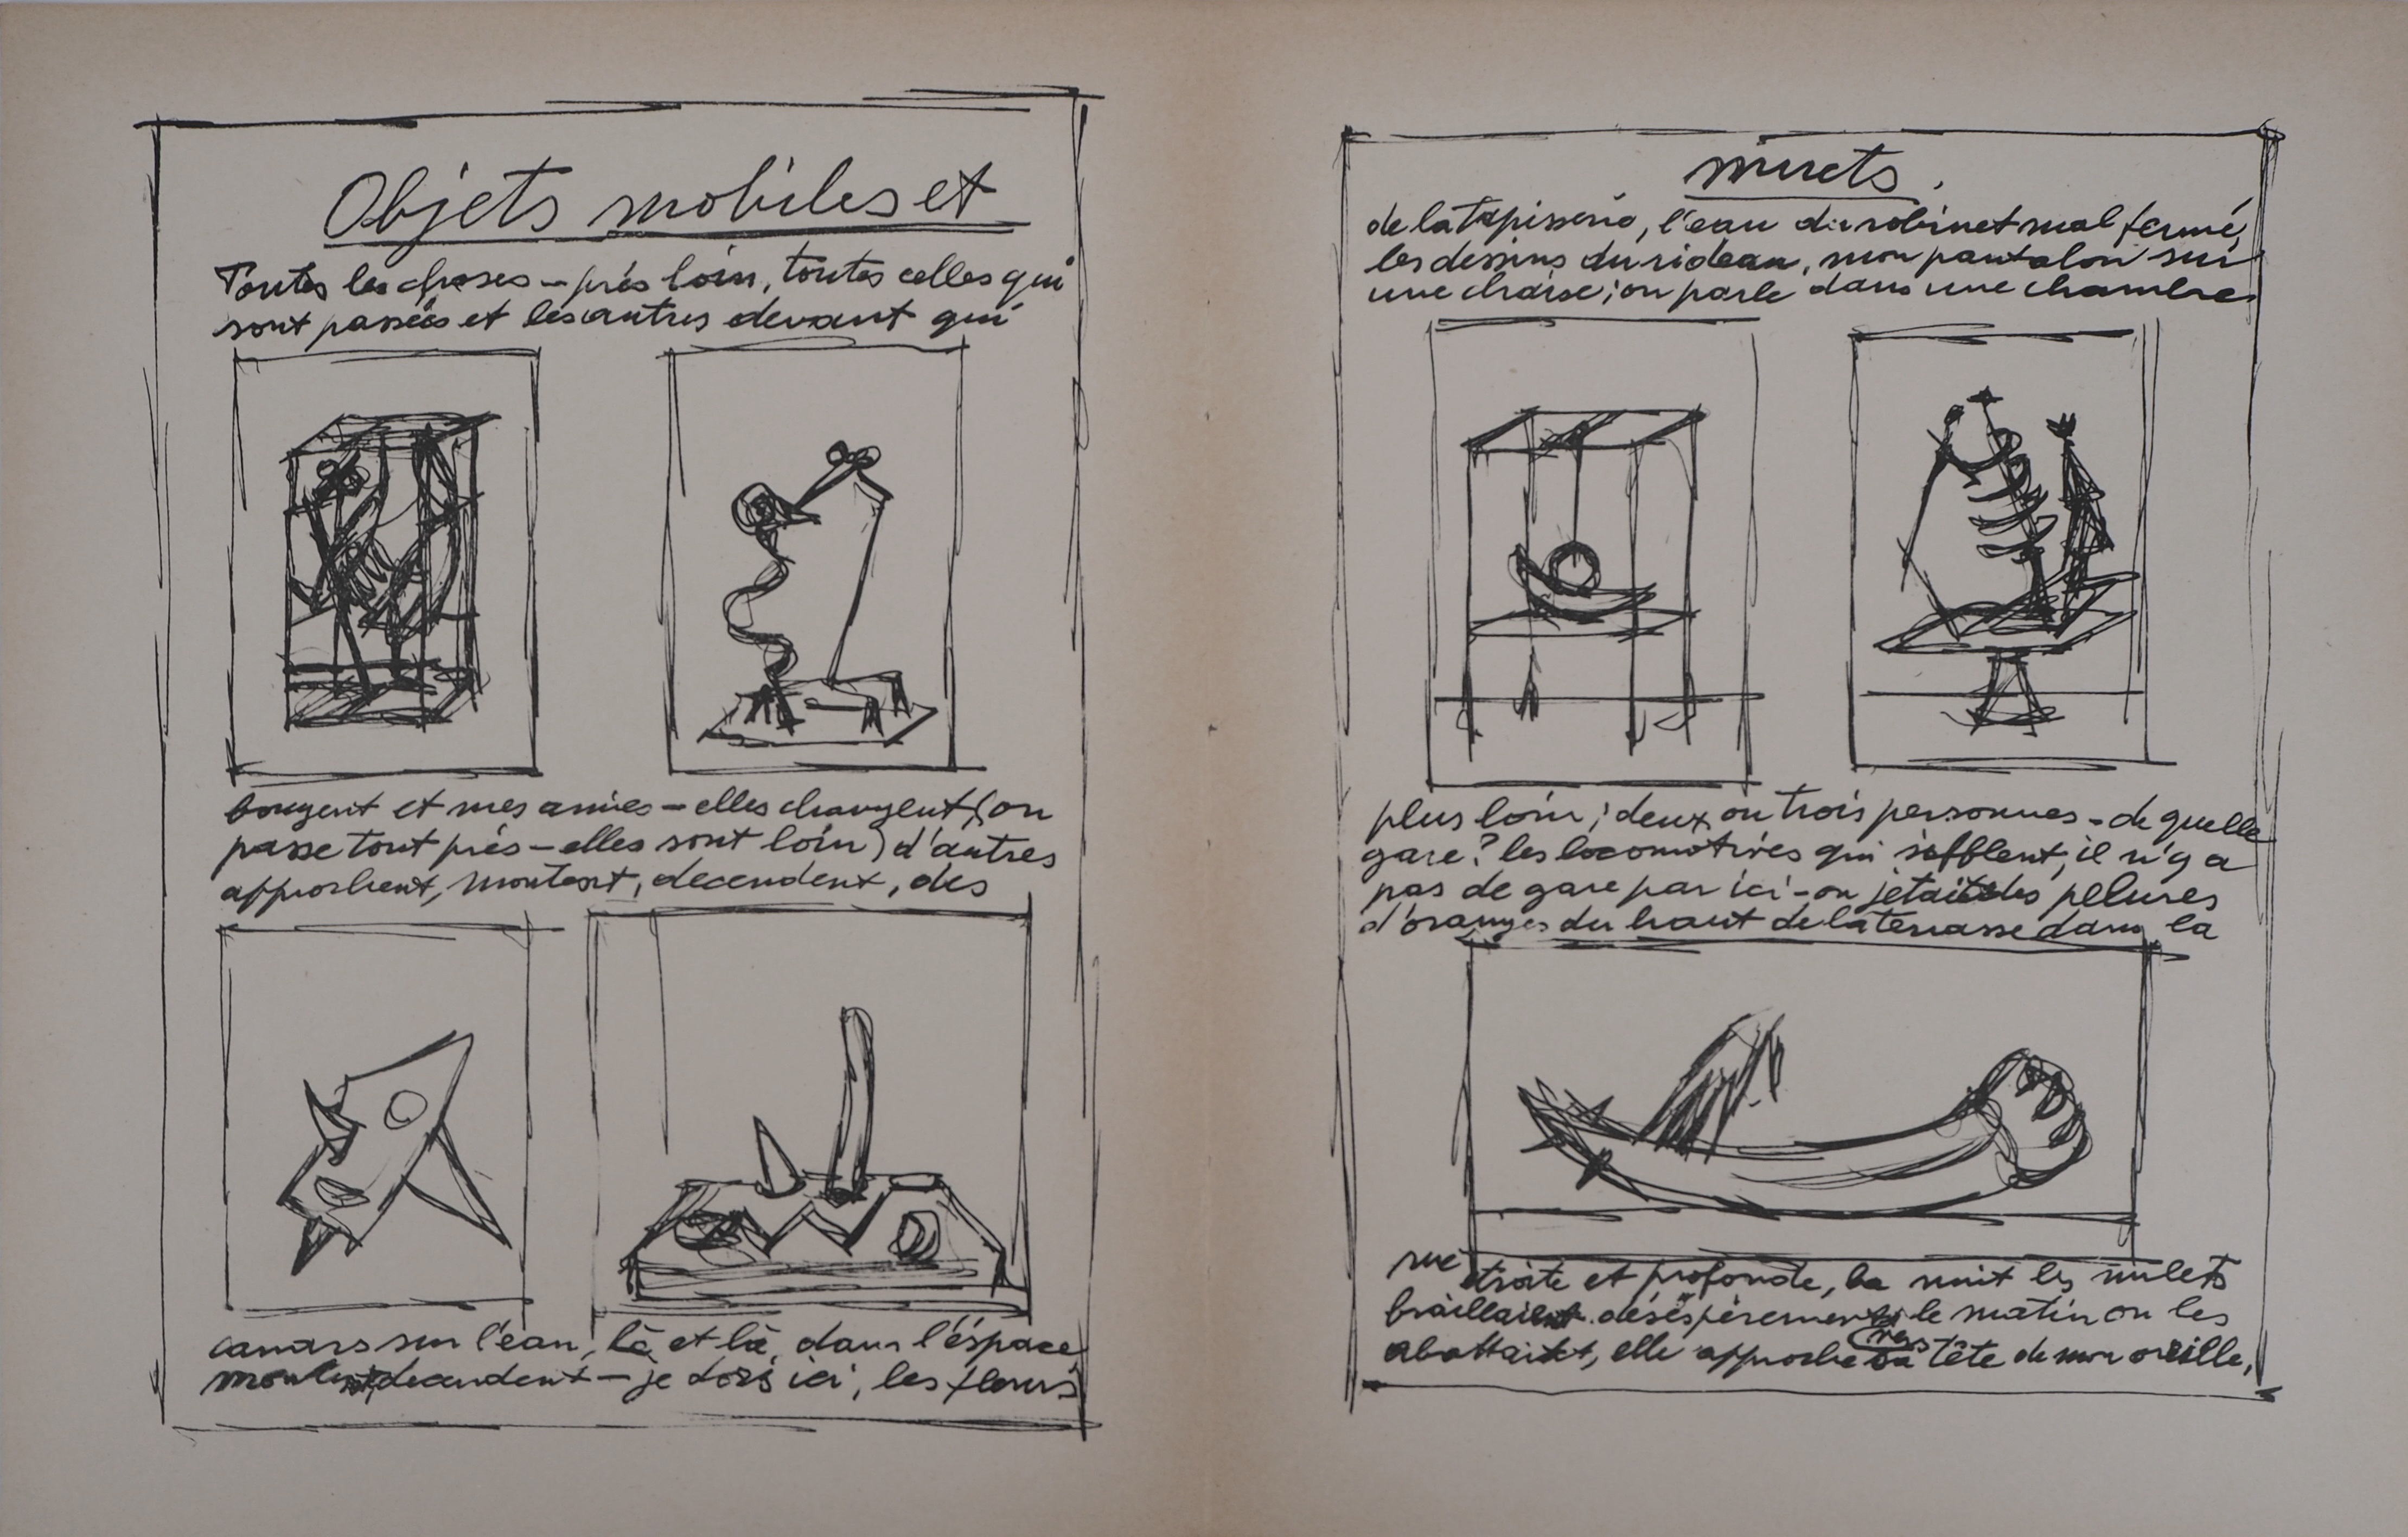 Objets mobiles et
Toutes les choses – près loin, toutes celles qui
sont passées et les autres devant qui
bougent et mes amies – elles changent (on
passe tout près – elles sont loin) d'autres
approchent, montent, decendent, des
canars sur l'eau, là et là, dans l'éspace
montent decendent – je dors ici, les fleurs
muets.
de la tapisserie, l'eau du robinet mal fermé,
les dessins du rideau, mon pantalon sur
une chaise; on parle dans une chambre
plus loin; deux ou trois personnes – de quelle
gare? les locomotives qui sifflent, il n'y a
pas de gare par ici – on jetait des pelures
d'oranges du haut de la terrasse dans la
rue étroite et profonde, la nuit les mulets
braillaient désespérement le matin on les
abattait, elle approche sa tête de mon oreille,